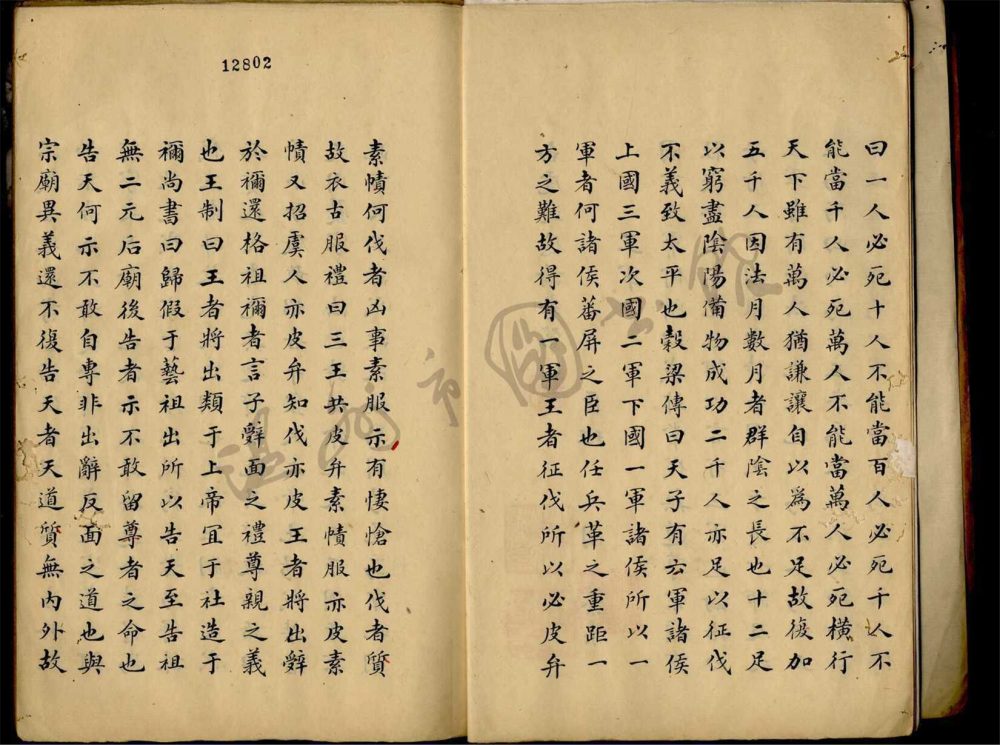 曰一人必死十人不能當百人必死千人不
能當千人必死萬人不能當萬人必死橫行
天下雖有萬人猶謙讓自以爲不足故復加
五千人因法月數月者群陰之長也十二足
以窮盡陰陽備物成功二千人亦足以征伐
不義致太平也穀梁傳曰天子有六軍諸侯
上國三軍次國二軍下國一軍諸侯所以一
軍者何諸侯蕃屏之臣也任兵革之重距一
方之難故得有一軍王者征伐所以必皮弁
12802
素幘何伐者凶事素服示有悽愴也伐者質
故衣古服禮曰三王共皮弁素幘服亦皮素
幘又招虞人亦皮弁知伐亦皮王者將出辭
於禰還格祖禰者言子辭面之禮尊親之義
也王制曰王者將出類于上帝宜于社造于
禰尚書曰歸假于藝祖出所以告天至告祖
無二元后廟後告者示不敢留尊者之命也
告天何示不敢自專非出辭反面之道也與
宗廟異義還不復告天者天道質無內外故
溫州市圖書館